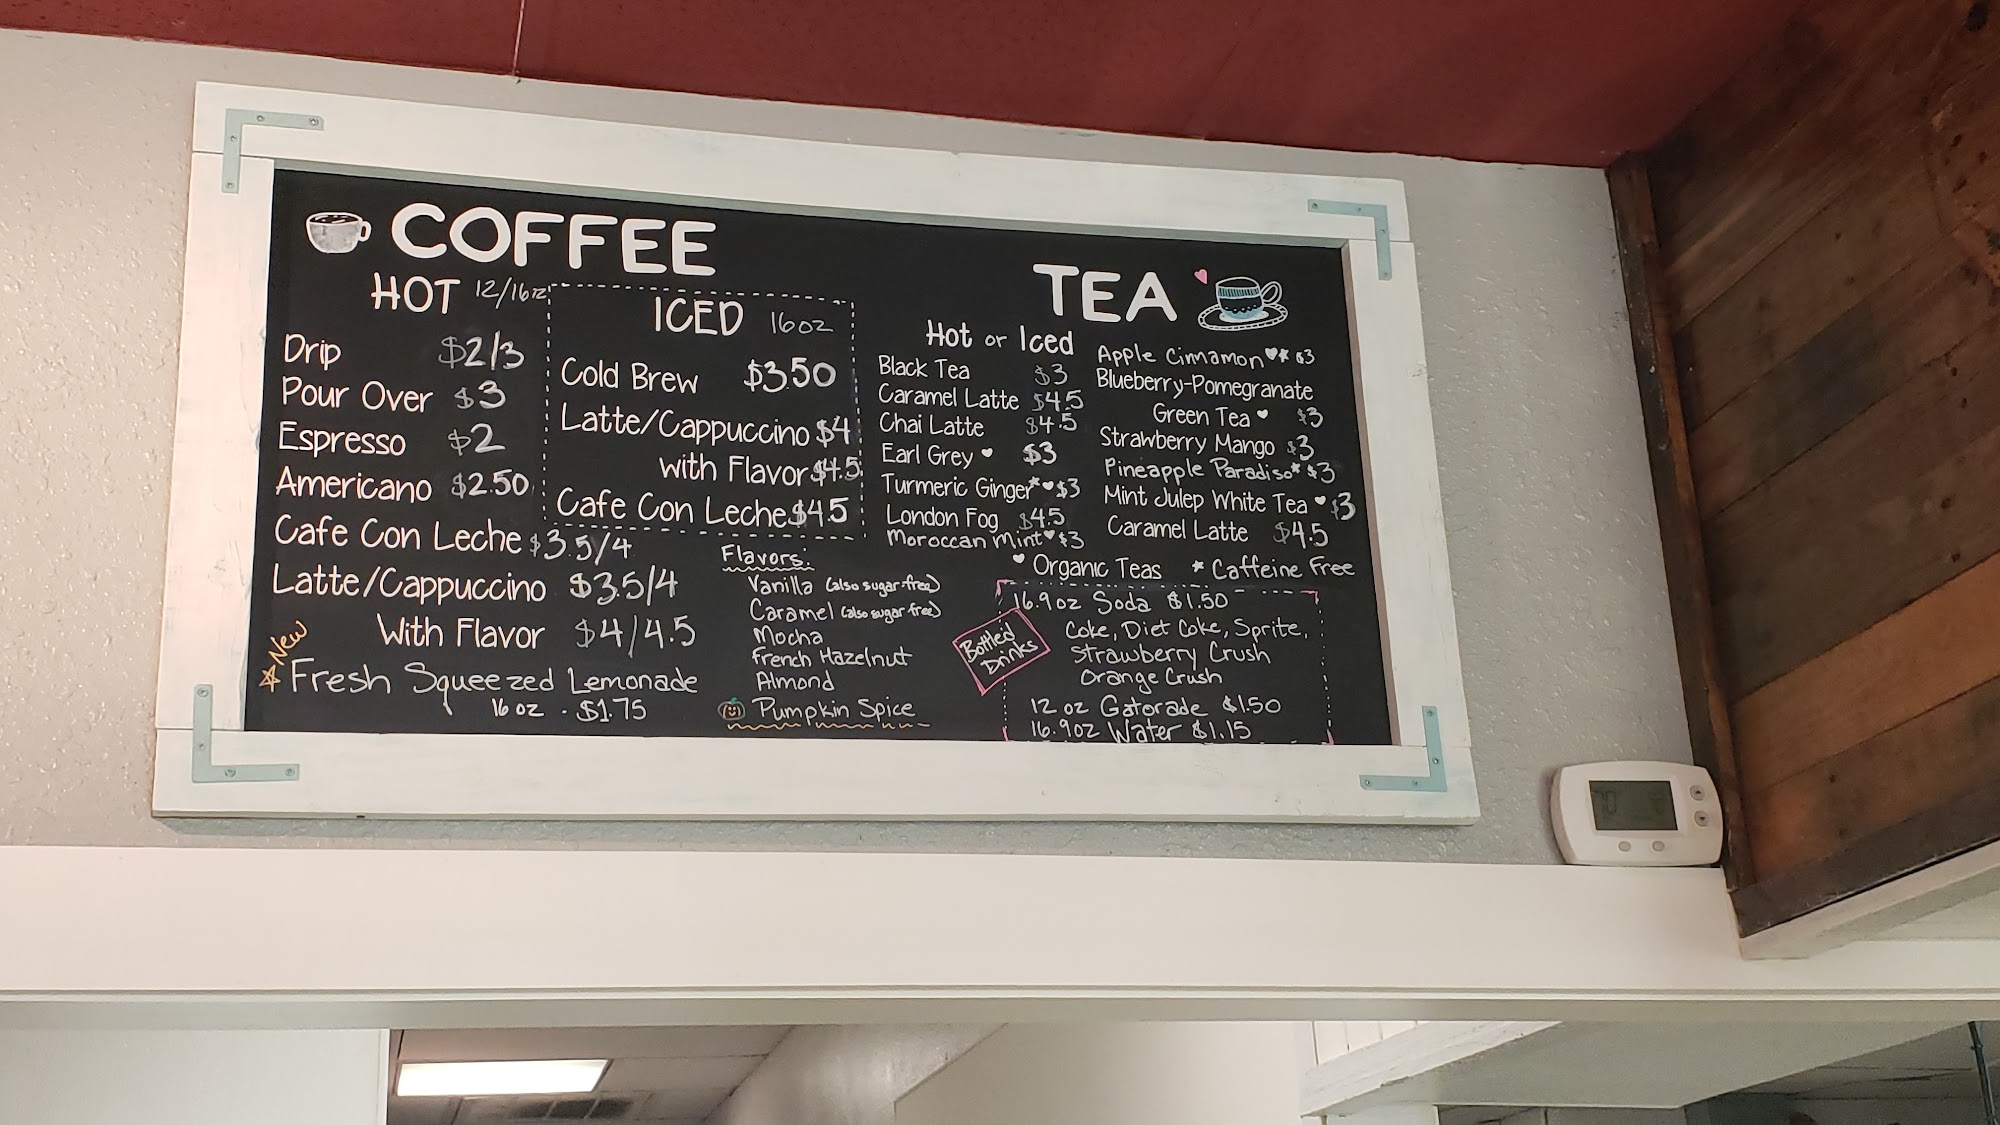 COFFEE
HOT 12/16oz
Drip $2/3
Pour Over $3
Espresso $2
Americano $2.50
Cafe Con Leche $3.5/4
Latte/Cappuccino $3.5/4
With Flavor $4/4.5
New
Fresh Squeezed Lemonade
16 oz - $1.75
ICED 16oz
Cold Brew $3.50
Latte/Cappuccino $4
with Flavor $4.5
Cafe Con Leche $4.5
Flavors:
Vanilla (also sugar-free)
Caramel (also sugar free)
Mocha
French Hazelnut
Almond
Pumpkin Spice
TEA
Hot or Iced
Black Tea $3
Caramel Latte $4.5
Chai Latte $4.5
Earl Grey ♥ $3
Turmeric Ginger*♥ $3
London Fog $4.5
Moroccan Mint ♥ $3
Apple Cinnamon ♥* $3
Blueberry-Pomegranate
Green Tea ♥ $3
Strawberry Mango $3
Pineapple Paradiso* $3
Mint Julep White Tea ♥ $3
Caramel Latte $4.5
♥ Organic Teas * Caffeine Free
Bottled
Drinks
16.9oz Soda $1.50
Coke, Diet Coke, Sprite,
Strawberry Crush
Orange Crush
12 oz Gatorade $1.50
16.9oz Water $1.15